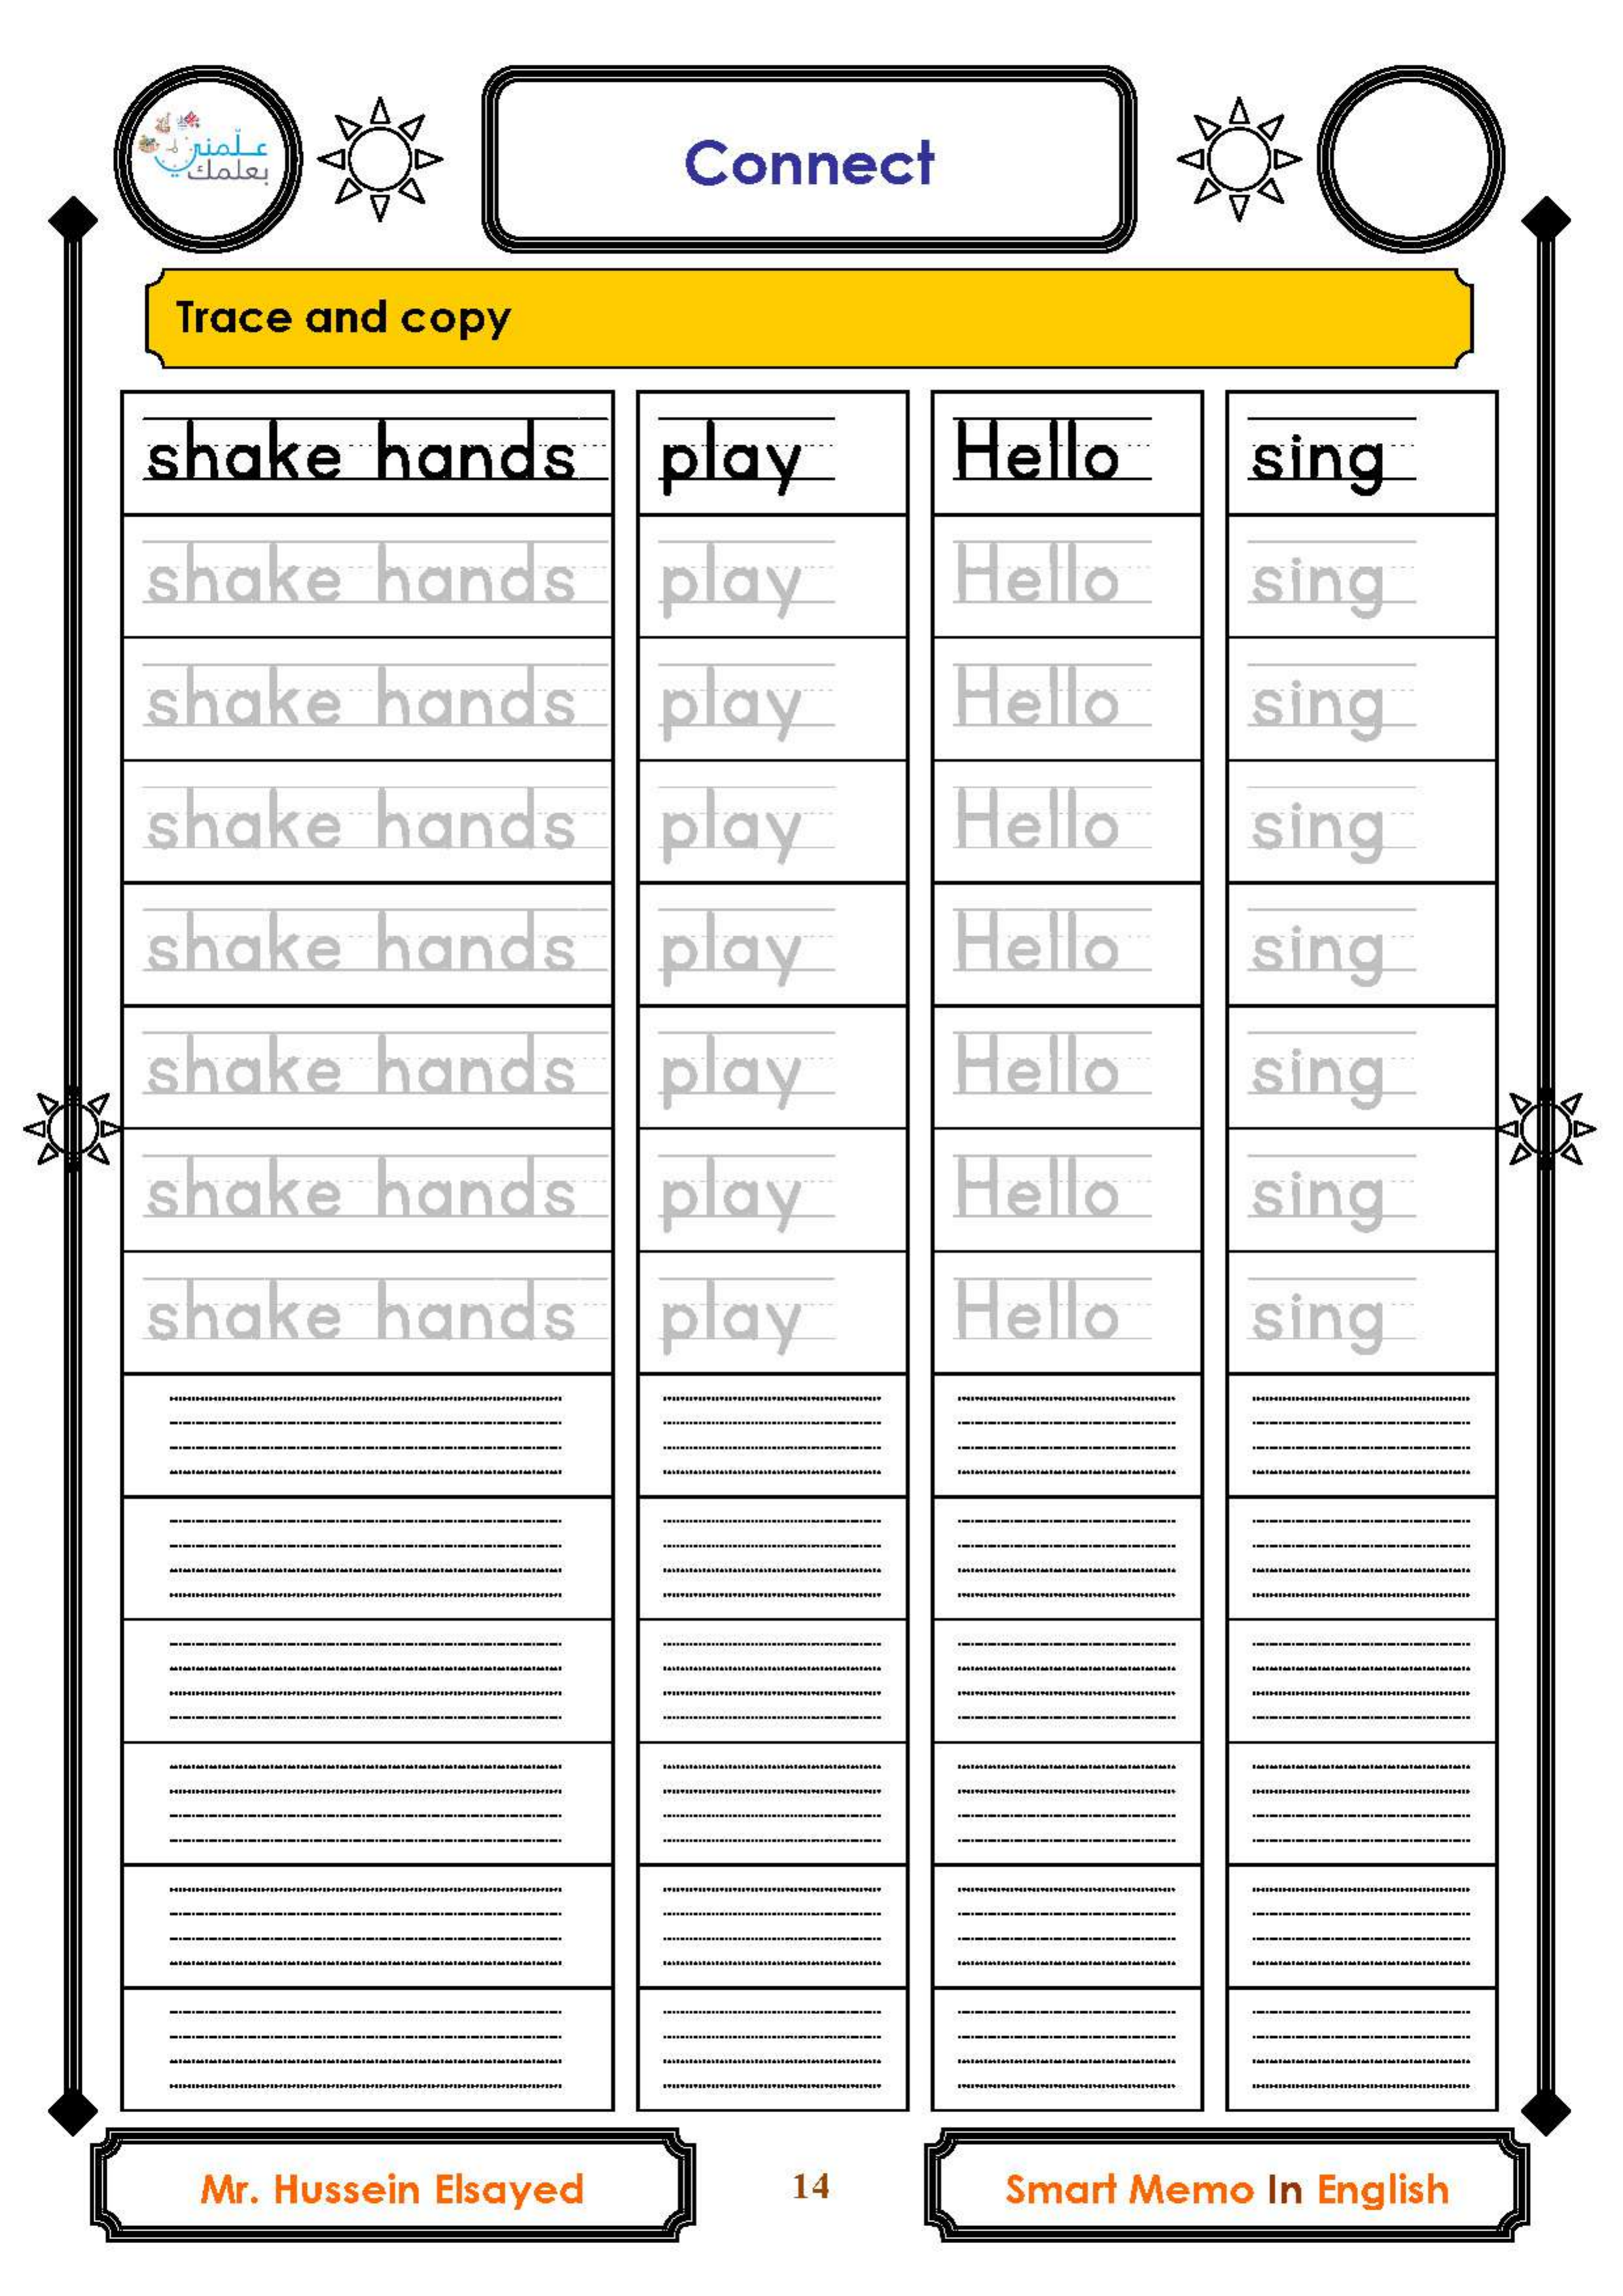 علّمني
بعلمك
Connect
Trace and copy
shake hands play Hello sing
shake hands play Hello sing
shake hands play Hello sing
shake hands play Hello sing
shake hands play Hello sing
shake hands play Hello sing
shake hands play Hello sing
shake hands play Hello sing
Mr. Hussein Elsayed 14 Smart Memo In English